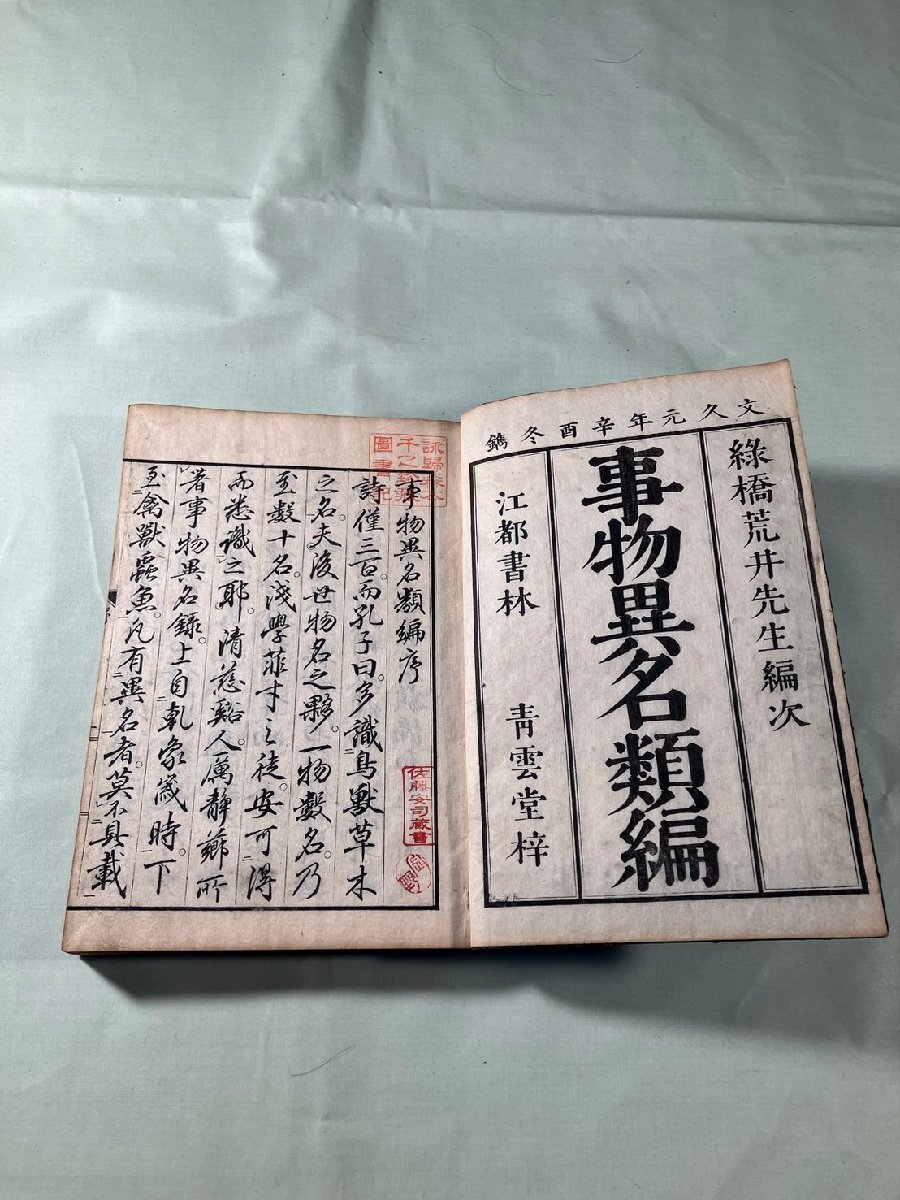 文久元年辛酉冬鐫
綠橋荒井先生編次
事物異名類編
江都書林 靑雲堂梓
事物異名類編序
詩僅三百而孔子曰多識鳥獸草木
之名夫後世物名之夥一物數名乃
至數十名淺學菲才之徒安可得
而悉識之耶清慈谿人厲靜薌所
著事物異名錄上自乾象歲時下
至禽獸蟲魚凡有異名者莫不具載
圖書記
佐藤安司藏書